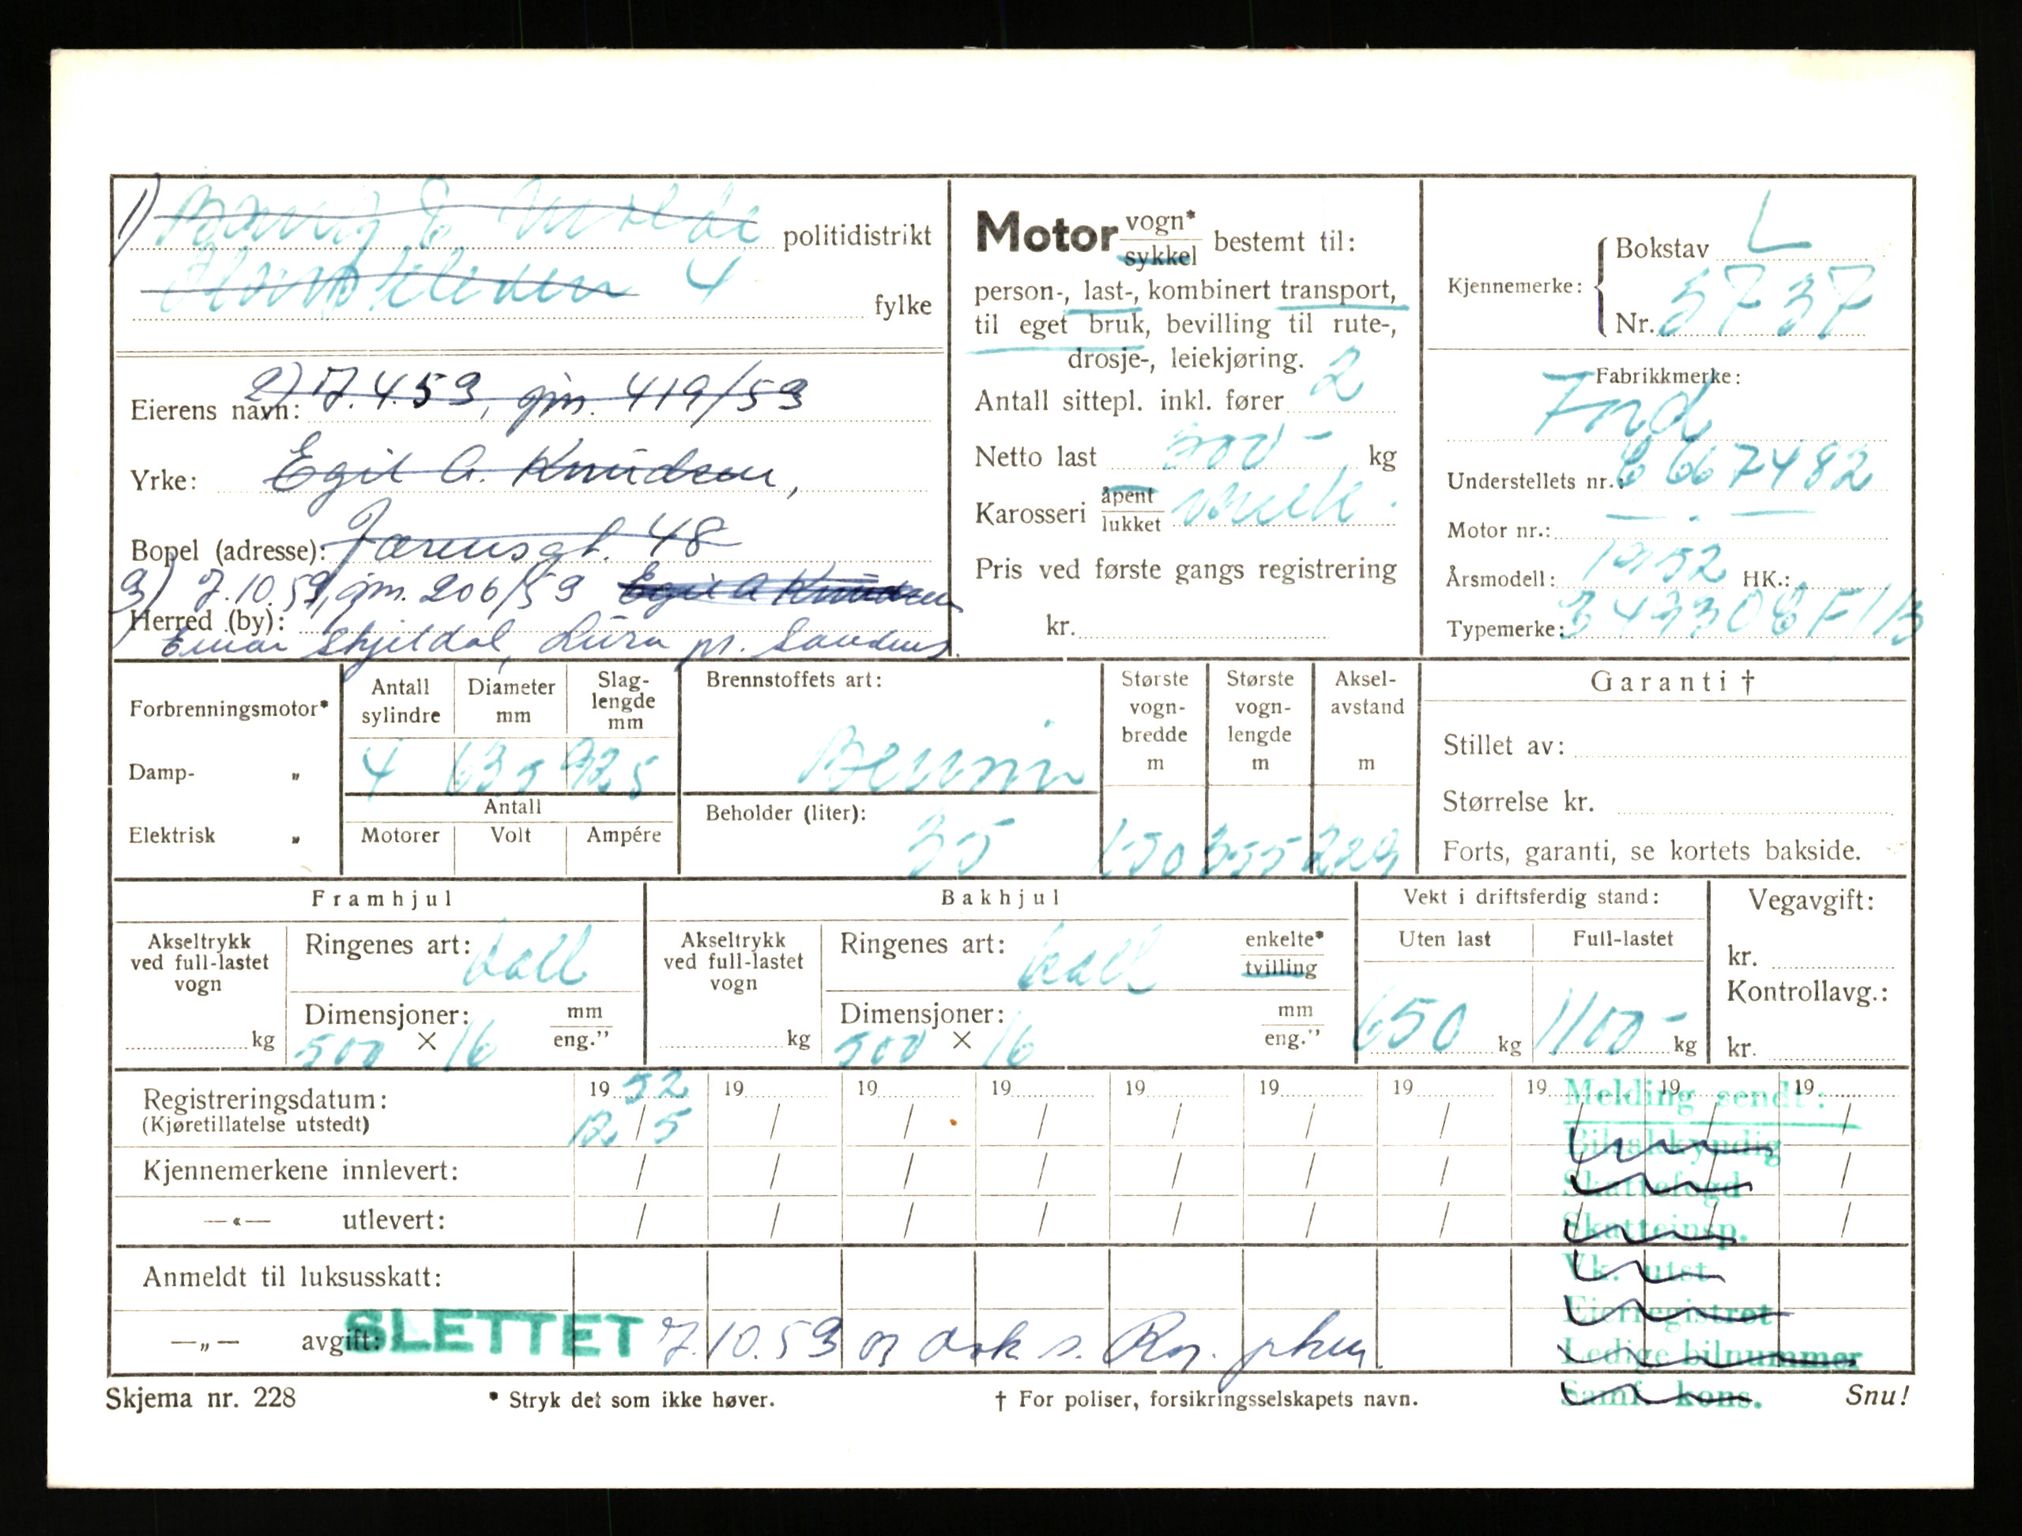 1)
politidistrikt
4
fylke
2) 17.4.53, gjm. 419/53
Eierens navn:
Yrke: Egil A. Knudsen,
Bopel (adresse): Jærensgt. 48
3) 7.10.53, gjm. 206/53 Egil A Knudsen
Herred (by):
Einar Skjeldal, Lura pr. Sandnes.
Motor vogn* / sykkel bestemt til:
person-, last-, kombinert transport,
til eget bruk, bevilling til rute-,
drosje-, leiekjøring.
Antall sittepl. inkl. fører 2
Netto last kg
Karosseri åpent / lukket
Pris ved første gangs registrering
kr.
Kjennemerke:
Bokstav L
Nr. 5737
Fabrikkmerke:
Ford
Understellets nr.: C 667482
Motor nr.: — " —
Årsmodell: 1952 HK.:
Typemerke:
Forbrenningsmotor*
Damp- „
Elektrisk „
Antall sylindre
Diameter mm
Slag-lengde mm
4 635 925
Antall
Motorer Volt Ampére
Brennstoffets art:
Bensin
Beholder (liter):
35
Største vogn-bredde m
150
Største vogn-lengde m
355
Aksel-avstand m
229
Garanti †
Stillet av:
Størrelse kr.
Forts, garanti, se kortets bakside.
Framhjul
Akseltrykk ved full-lastet vogn
kg
Ringenes art: ball
Dimensjoner: mm / eng."
500 × 16
Bakhjul
Akseltrykk ved full-lastet vogn
kg
Ringenes art: ball
enkelte* / tvilling
Dimensjoner: mm / eng."
500 × 16
Vekt i driftsferdig stand:
Uten last Full-lastet
650 kg 1100- kg
Vegavgift:
kr.
Kontrollavg.:
kr.
19 52 19 19 19 19 19 19 19 19 19
Registreringsdatum:
(Kjøretillatelse utstedt)
12/5 / / / / / / / / /
Kjennemerkene innlevert: / / / / / / / / / /
—«— utlevert: / / / / / / / / / /
Anmeldt til luksusskatt:
—„— avgift:
SLETTET 7.10.53
Melding sendt:
Bilsakkyndig
Skattefogd
Skatteinsp.
Vk. utst
Eierregistret
Ledige bilnummer
Samf. kons.
Skjema nr. 228
* Stryk det som ikke høver.
† For poliser, forsikringsselskapets navn.
Snu!